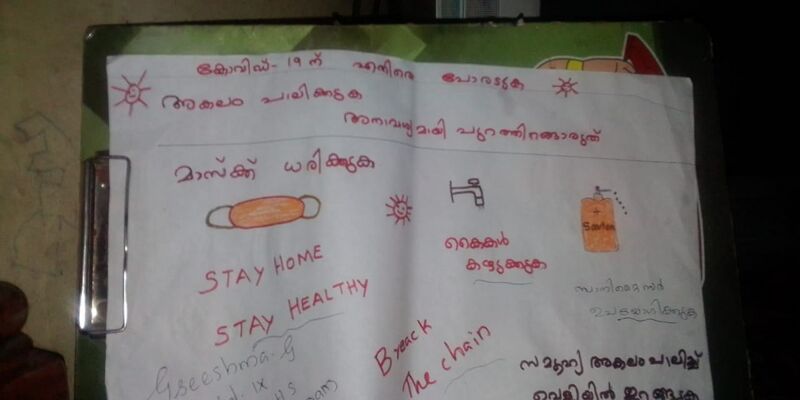 കോവിഡ്-19 ന് എതിരെ പോരടുക
അകലം പാലിക്കുക
അനാവശ്യമായി പുറത്തിറങ്ങാരുത്
മാസ്ക്ക് ധരിക്കുക
STAY HOME
STAY HEALTHY
കൈകൾ
കഴുക്കുക
സാനിടൈസർ
ഉപയോഗിക്കുക
Breack
The chain
Greeshma. G
IX
HS
സമൂഹ്യ അകലം പാലിച്ച്
വെളിയിൽ ഇറങ്ങുക